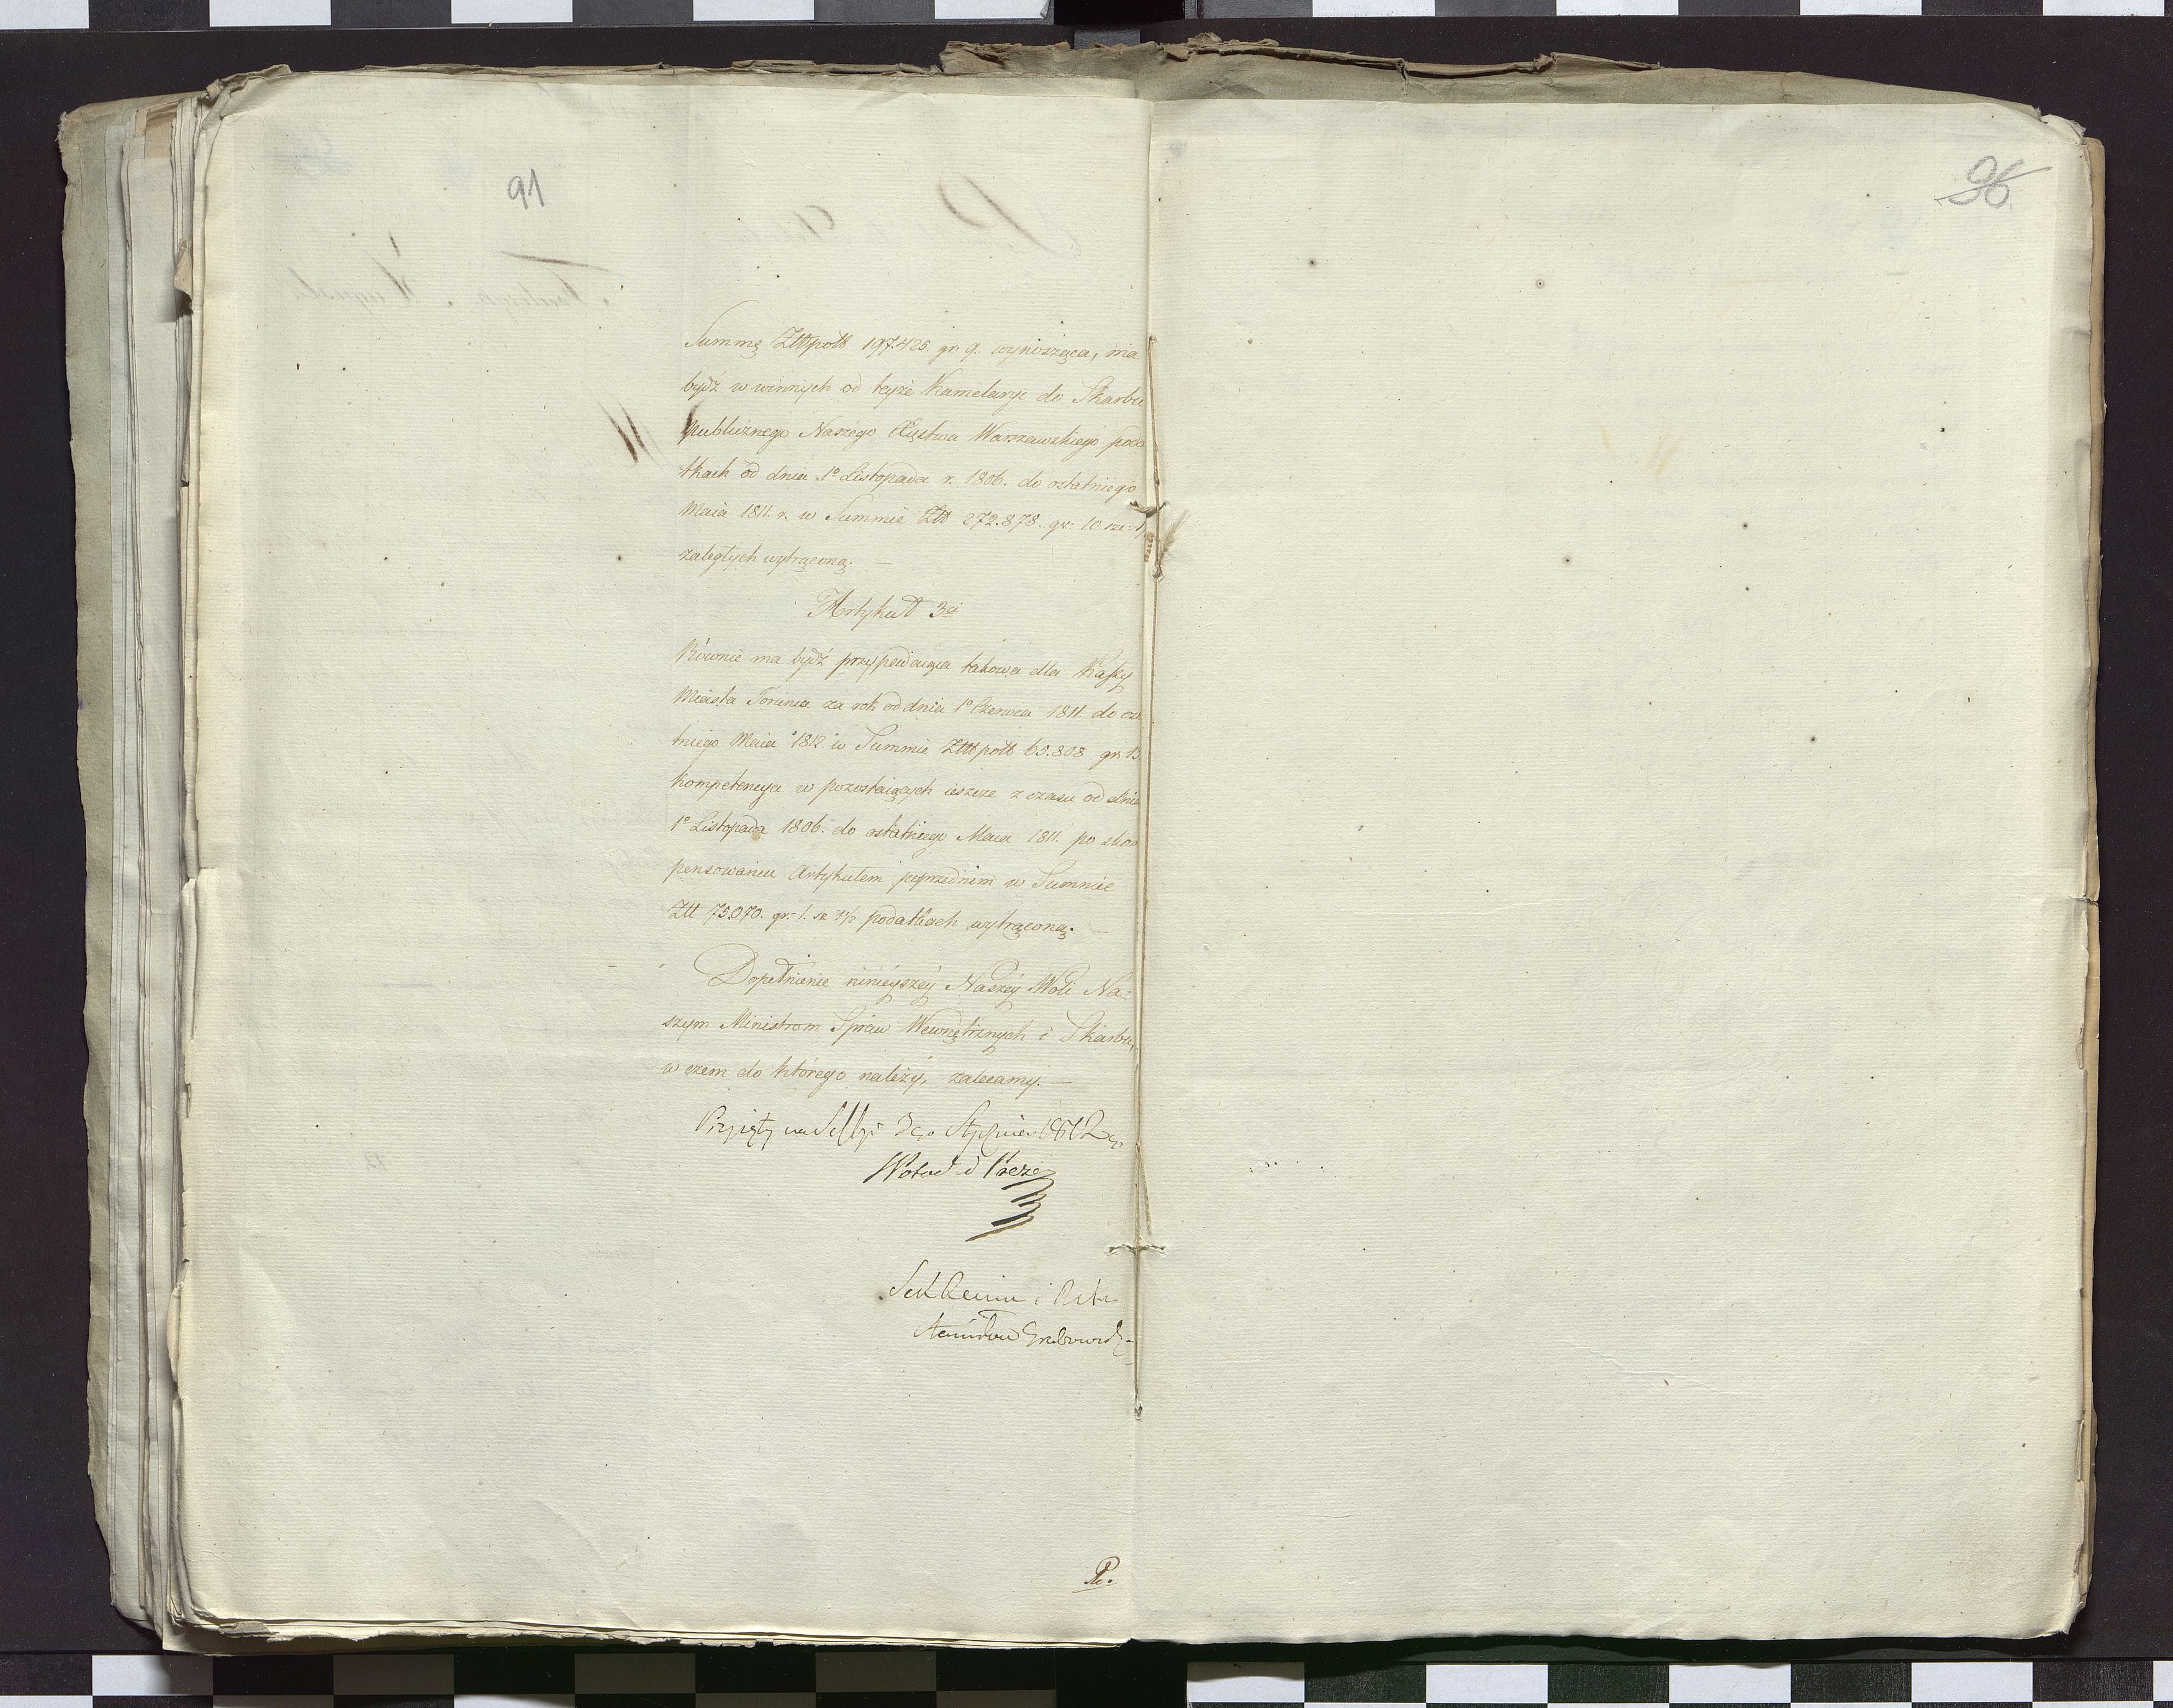 91
96
Summę Złł polł 197.425 gr. 9. wynosząca, ma
bydź w winnych od teyże Kamelaryi do Skarbu
publicznego Naszego Xięstwa Warszawskiego poda
tkach od dnia 1º Listopada r. 1806. do ostatniego
Maia 1811. r. w Summie Złł 272.878. gr: 10
zaległych wytrąconą. —
Artykuł 3ci
Równie ma bydź przypadaiąca takowa dla Kassy
Miasta Torunia za rok od dnia 1º Czerwca 1811. do osta
tniego Maia 1812. w Summie Złł polł 63.808 gr.
kompetencya w pozostaiących ieszcze z czasu od dnia
1º Listopada 1806. do ostatniego Maia 1811. po skom
pensowaniu Artykułem poprzednim w Summie
Złł 75.070. gr. 1. sz 1½ podatkach wytrąconą. —
Dopełnienie ninieyszey Naszey Woli Na-
szym Ministrom Spraw Wewnętrznych i Skarbu,
w czem do którego należy, zalecamy. —
Przyięty na Sessyi 3go Stycznia 1812 go
Prezes
Stanisław Grabowski